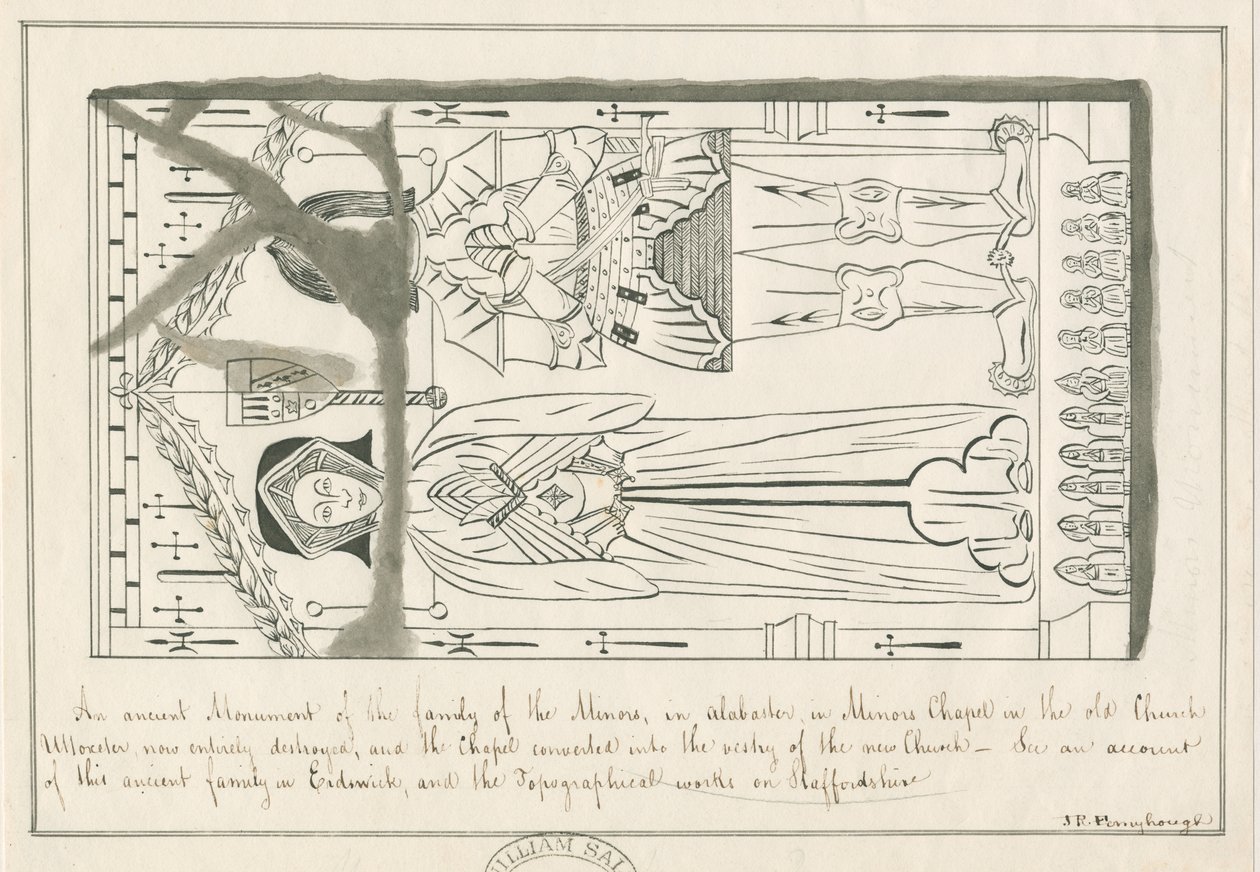 An ancient Monument of the family of the Minors, in alabaster, in Minors Chapel in the old Church
Uttoxeter, now entirely destroyed, and the Chapel converted into the vestry of the new Church – See an account
of this ancient family in Erdswick, and the Topographical works on Staffordshire
J R. Fernyhough
WILLIAM SAL